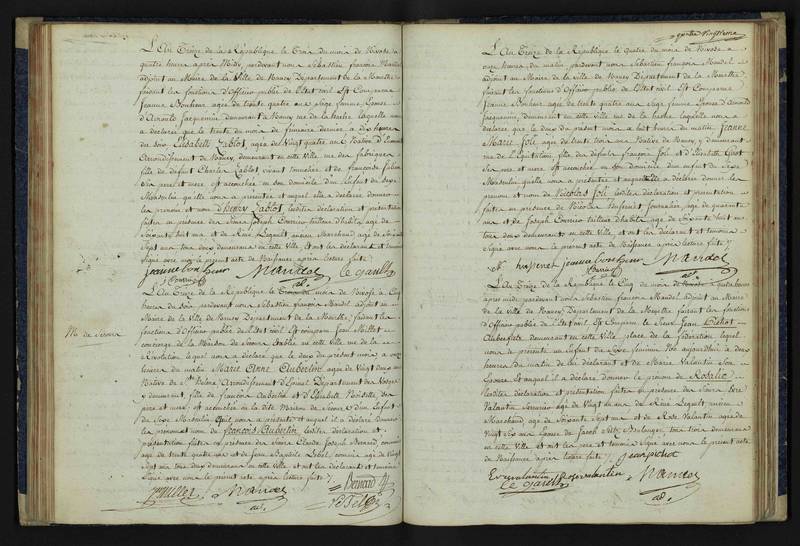 L'An Treize de la République le Trois du mois de Nivose à
quatre heures après Midy, pardevant nous Sébastien françois Mandel
adjoint au Maire de la Ville de Nancy Département de la Meurthe
faisant les fonctions d'Officier public de l'Etat civil Est Comparue
Jeanne Bonheur agée de trente quatre ans Sage femme, Epouse
d'Arnould Jacquemin, demeurant à Nancy rue de la hache laquelle nous
a déclaré que le trente du mois de frimaire dernier à dix heures
du soir Elisabeth Lablot, agée de Vingt quatre ans Native
Arrondissement de Nancy, demeurant en cette Ville rue des fabriques
fille de défunt Charles Lablot, vivant et de françoise
Ses père et mere est accouchée en son domicile d'un Enfant du Sexe
Masculin qu'elle nous a présenté et auquel elle a déclaré donner
les prénom et nom d'Henry Lablot lesdites déclaration et présentation
faites en présence de Joseph tailleur d'habits, agé de
Soixante huit ans et de René Lequelt ancien Marchand agé de Soixante
Sept ans tous deux demeurans en cette Ville, et ont les déclarant et témoins
Signé avec nous le présent acte de Naissance après lecture faite
jeanne bonheur Mandel
adt.
L'An Treize de la République le Trois du mois de Nivose à Cinq
heures du Soir pardevant nous Sébastien françois Mandel adjoint au
Maire de la Ville de Nancy Département de la Meurthe, faisant les
fonctions d'Officier public de l'Etat civil Est comparu Jean Millet
concierge de la Maison de Secours établie en cette Ville rue de la
Mon de Secours
Révolution lequel nous a déclaré que le deux du présent mois à onze
heures du matin Marie Anne Aubertin agée de Vingt deux ans
Native de Ste Helene Arrondissement d'Epinal Département des Vosges
y demeurant, fille de françois Aubertin et d'Elisabeth Ses
père et mere, est accouchée en la dite Maison de Secours d'un Enfant
du Sexe Masculin qu'il nous a présenté et auquel il a déclaré donner
les prénom et nom de François Aubertin lesdites déclaration et
présentation faites en présence de Claude Joseph Bernard commis
agé de trente quatre ans et de Jean Baptiste commis agé de Vingt
Sept ans tous deux demeurans en cette Ville, et ont les déclarant et témoins
Signé avec nous le présent acte, après lecture faite
Millet Mandel Bernard
adt.
quatre vingtieme
L'An Treize de la République le quatre du mois de Nivose à
onze heures du matin pardevant nous Sébastien françois Mandel
adjoint au Maire de la Ville de Nancy Département de la Meurthe
faisant les fonctions d'Officier public de l'Etat civil Est Comparue
Jeanne Bonheur agée de trente quatre ans Sage femme Epouse d'Arnould
Jacquemin, demeurant en cette Ville rue de la hache laquelle nous a
déclaré que le deux du présent mois à huit heures du matin Jeanne
Marie Joli agée de trente trois ans Native de Nancy, y demeurant
rue de l'Equitation, fille des défunts françois Joli et d'Elisabeth
Ses père et mere est accouchée en son domicile d'un enfant du Sexe
Masculin qu'elle nous a présenté et auquel elle a déclaré donner les
prénom et nom de Nicolas Joli lesdites déclaration et présentation
faites en présence de Nicolas agé de quarante
ans et de Joseph tailleur d'habits agé de Soixante huit ans
tous deux demeurans en cette Ville, et ont les déclarant et témoins
Signé avec nous le présent acte de Naissance après lecture faite
jeanne bonheur Mandel
adt.
L'An Treize de la République le Cinq du mois de Nivose à quatre heures
après midi pardevant nous Sébastien françois Mandel adjoint au Maire
de la Ville de Nancy Département de la Meurthe faisant les fonctions
d'Officier public de l'Etat civil Est Comparu le Sieur Jean Pichot
Aubergiste demeurant en cette Ville place de la fédération lequel
nous a présenté un Enfant du Sexe féminin Né aujourd'hui à deux
heures du matin de lui déclarant et de Marie Valentin Son
Epouse et auquel il a déclaré donner le prénom de Rosalie
lesdites déclaration et présentation faites en présence des Sieurs
Valantin agé de Vingt ans et de René Lequelt ancien
Marchand agé de Soixante Sept ans et de Rose Valantin agée de
Vingt Six ans Epouse de Jacob Boulanger tous trois demeurans
en cette Ville et ont les père et témoins Signé avec nous le présent acte
de Naissance après lecture faite Jean pichot
valantin Rose valantin Mandel
adt.